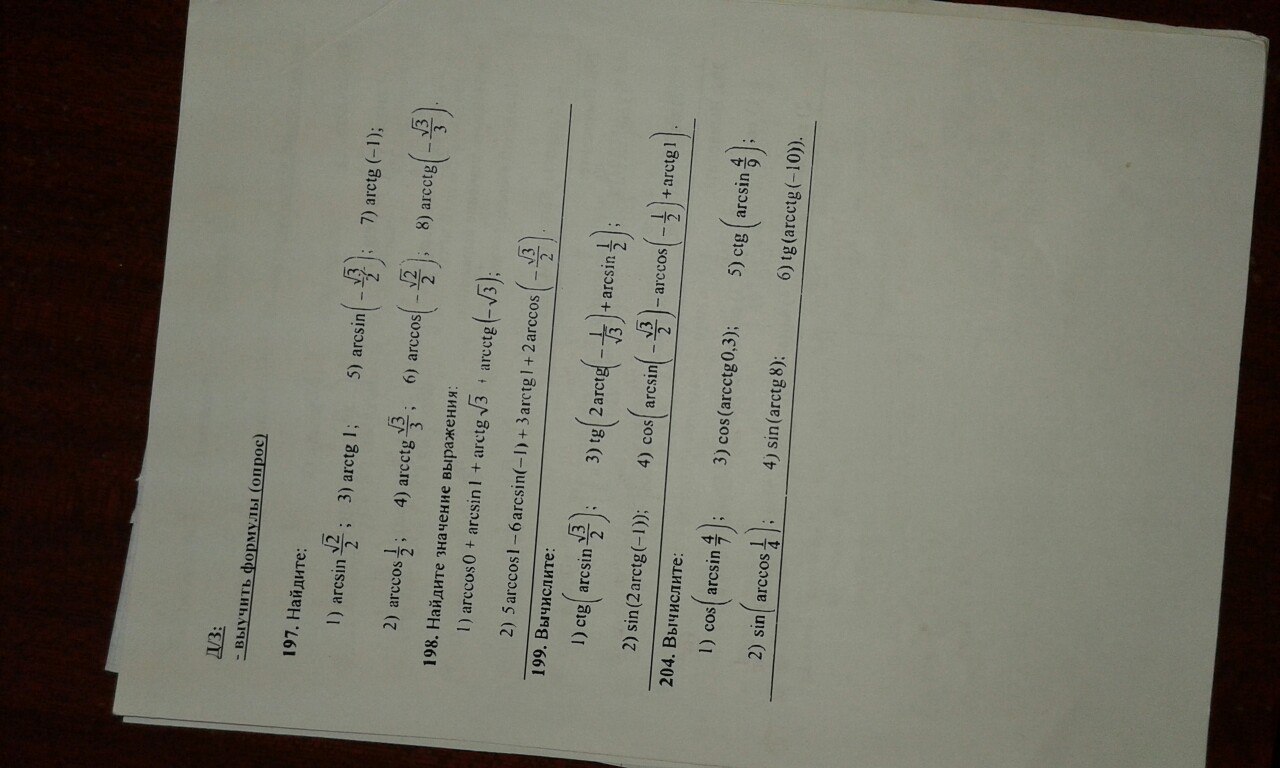 Д/З:
- выучить формулы (опрос)
197. Найдите:
1) arcsin √2/2; 3) arctg 1; 5) arcsin(−√3/2); 7) arctg (−1);
2) arccos 1/2; 4) arcctg √3/3; 6) arccos(−√2/2); 8) arcctg(−√3/3).
198. Найдите значение выражения:
1) arccos 0 + arcsin 1 + arctg √3 + arcctg(−√3);
2) 5 arccos 1 − 6 arcsin(−1) + 3 arctg 1 + 2 arccos (−√3/2).
199. Вычислите:
1) ctg(arcsin √3/2); 3) tg(2 arctg(−1/√3) + arcsin 1/2);
2) sin(2 arctg(−1)); 4) cos(arcsin(−√3/2) − arccos(−1/2) + arctg 1).
204. Вычислите:
1) cos(arcsin 4/7); 3) cos(arcctg 0,3); 5) ctg(arcsin 4/9);
2) sin(arccos 1/4); 4) sin(arctg 8); 6) tg(arcctg(−10)).